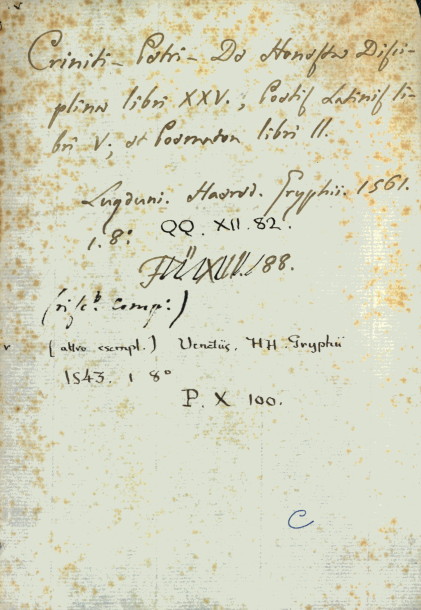 Criniti – Petri – De Honesta Disci-
plina libri XXV.; Poetis Latinis li-
bri V; et Poematon libri II.
Lugduni. Haered. Gryphii. 1561.
1. 8°
QQ. XII. 82.
188.
(risc.b comp:)
[altro esempl.] Venetiis. HH. Gryphii
1543. 1 8°
P. X 100.
C